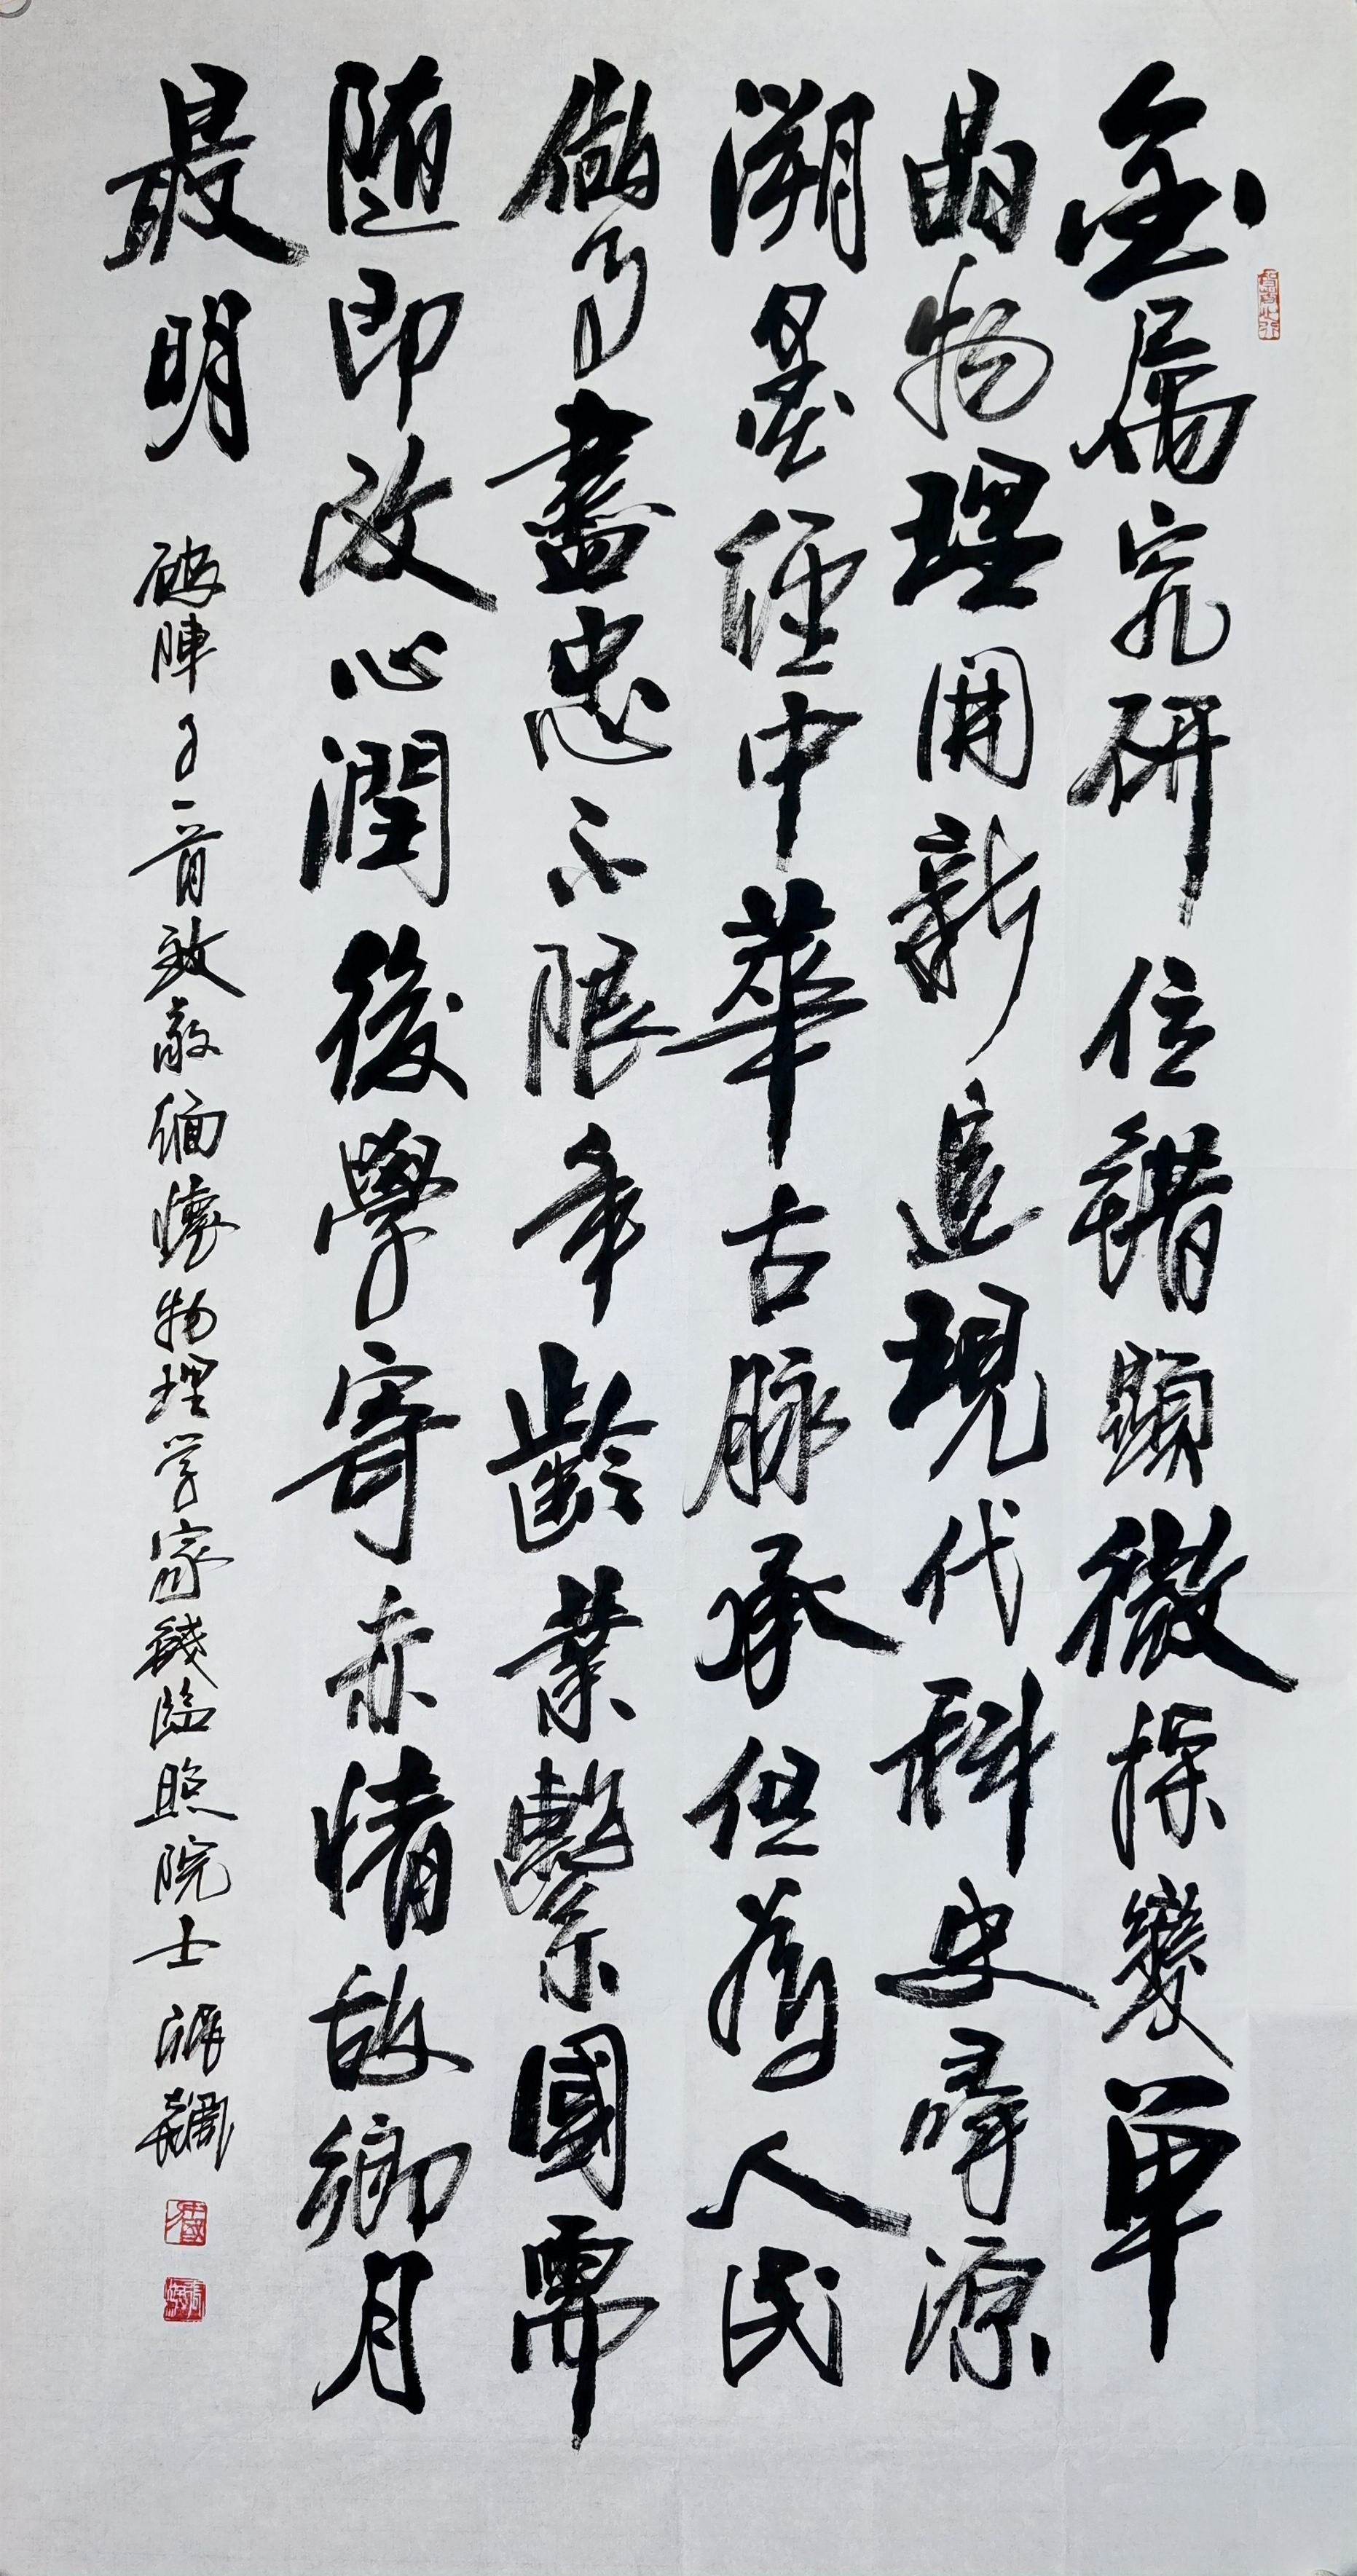 金属究研位错顯微探幾单
晶物理開新追現代科史尋源
溯墨經中華古脉承但為人民
做事盡忠不限年齡業繫國需
随即改心潤後學寄赤情故鄉月
最明
破陣子一首致敬缅懷物理学家錢臨照院士